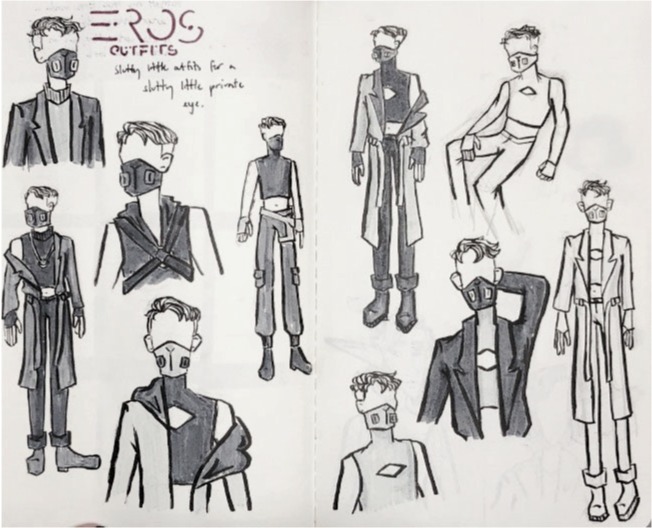 EROS
OUTFITS
slutty little outfits for a
slutty little private
eye.